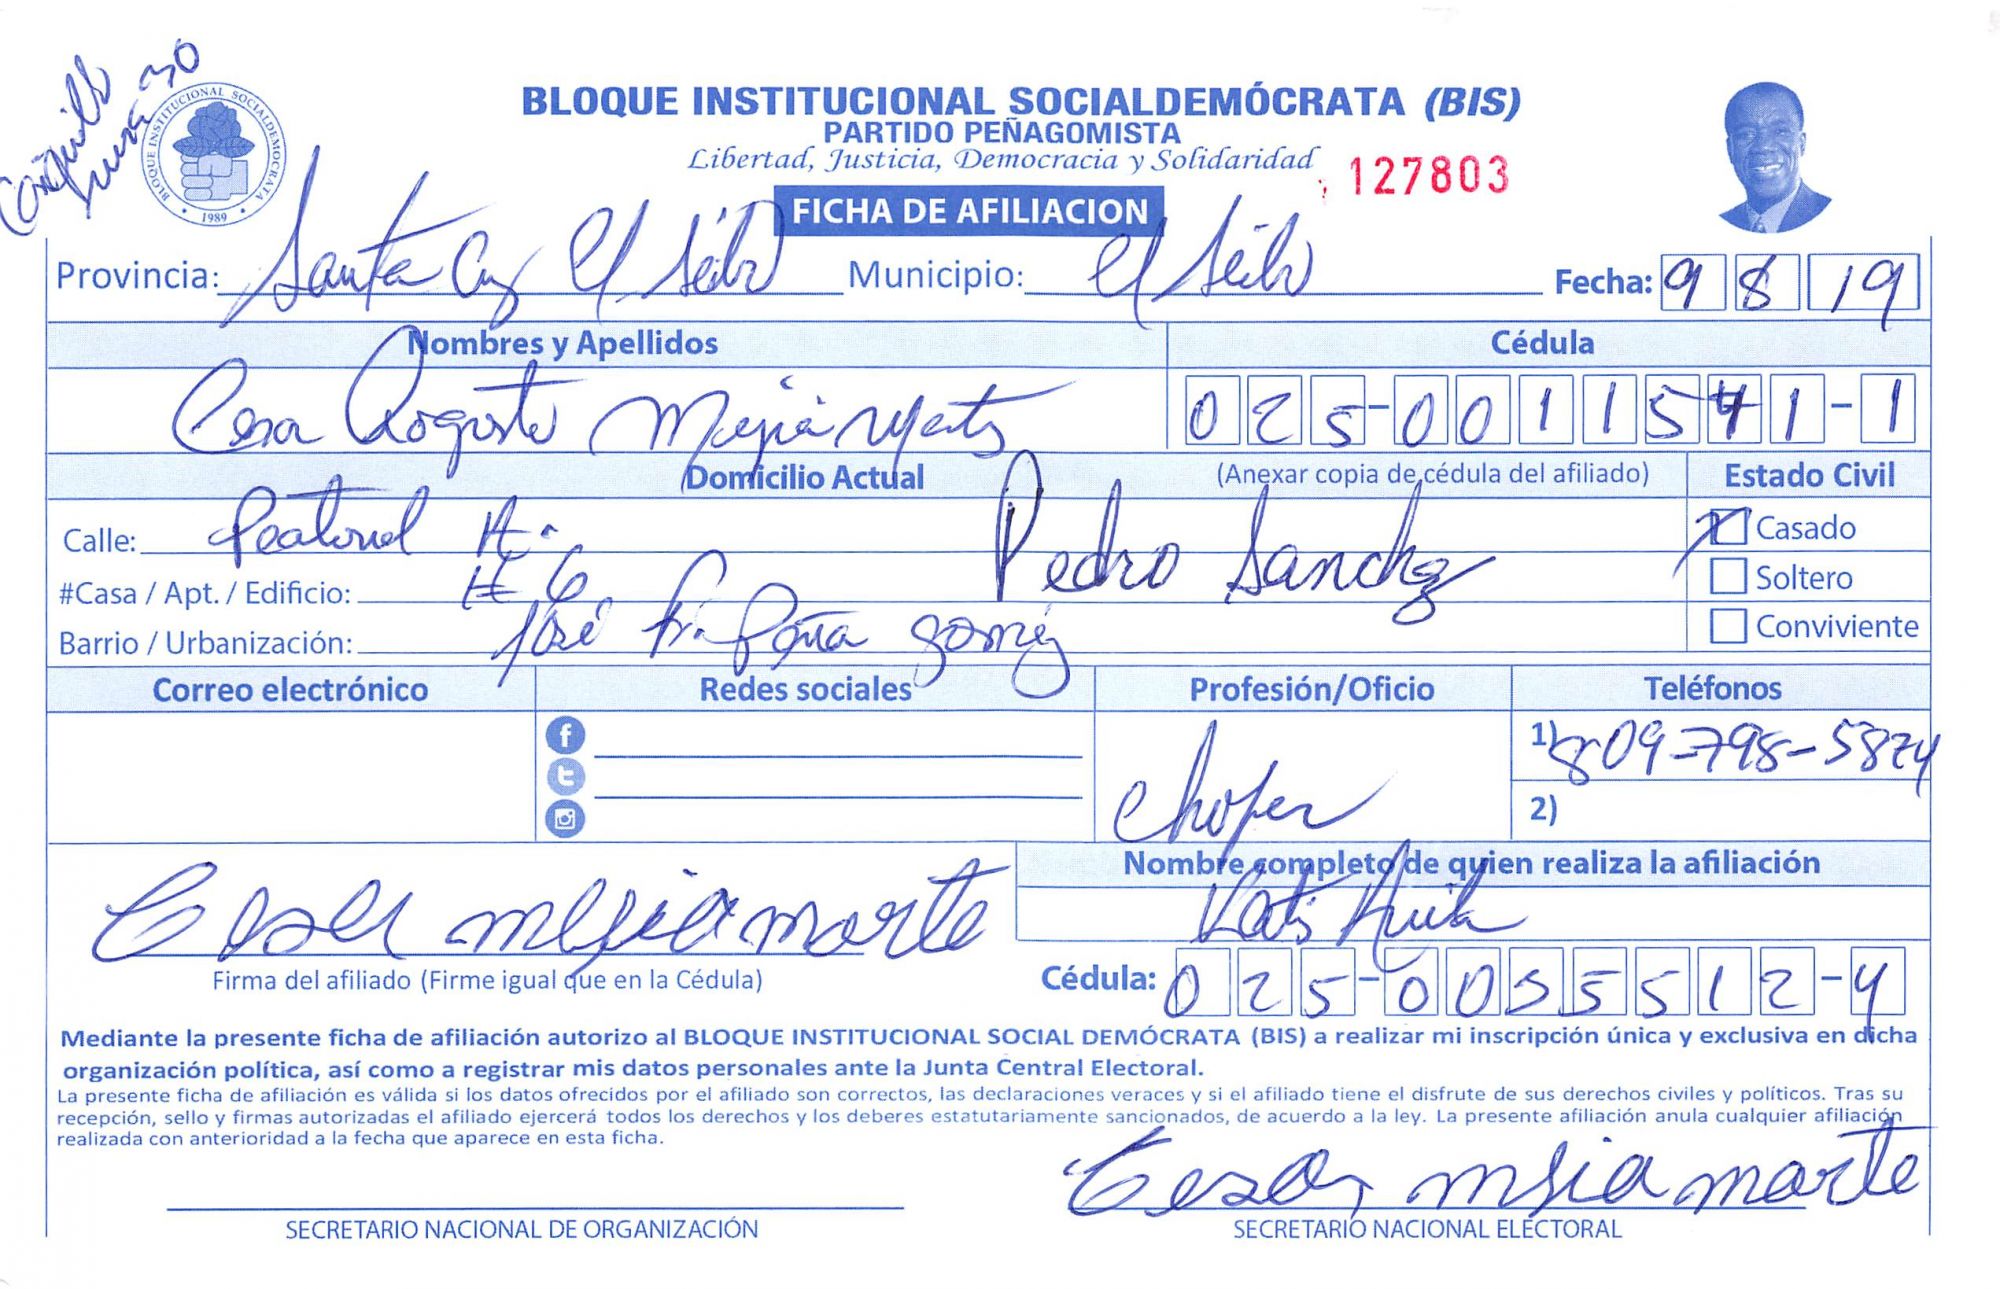 BLOQUE INSTITUCIONAL SOCIALDEMOCRATA
1989
BLOQUE INSTITUCIONAL SOCIALDEMÓCRATA (BIS)
PARTIDO PEÑAGOMISTA
Libertad, Justicia, Democracia y Solidaridad
127803
FICHA DE AFILIACION
Provincia: Santa Cruz El Seibo Municipio: El Seibo Fecha: 9 8 19
Nombres y Apellidos Cédula
Cesa Augusto Mejia 025-0011541-1
Domicilio Actual (Anexar copia de cédula del afiliado) Estado Civil
Calle: Peatonal Pedro Sanchez Casado
#Casa / Apt. / Edificio: # 6 Soltero
Barrio / Urbanización: José Fr. Peña Gomez Conviviente
Correo electrónico Redes sociales Profesión/Oficio Teléfonos
Chofer 1) 809-798-5874
2)
Nombre completo de quien realiza la afiliación
Cesar mejia marte
Firma del afiliado (Firme igual que en la Cédula) Cédula: 025-0035512-4
Mediante la presente ficha de afiliación autorizo al BLOQUE INSTITUCIONAL SOCIAL DEMÓCRATA (BIS) a realizar mi inscripción única y exclusiva en dicha
organización política, así como a registrar mis datos personales ante la Junta Central Electoral.
La presente ficha de afiliación es válida si los datos ofrecidos por el afiliado son correctos, las declaraciones veraces y si el afiliado tiene el disfrute de sus derechos civiles y políticos. Tras su
recepción, sello y firmas autorizadas el afiliado ejercerá todos los derechos y los deberes estatutariamente sancionados, de acuerdo a la ley. La presente afiliación anula cualquier afiliación
realizada con anterioridad a la fecha que aparece en esta ficha.
Cesar mejia marte
SECRETARIO NACIONAL DE ORGANIZACIÓN SECRETARIO NACIONAL ELECTORAL